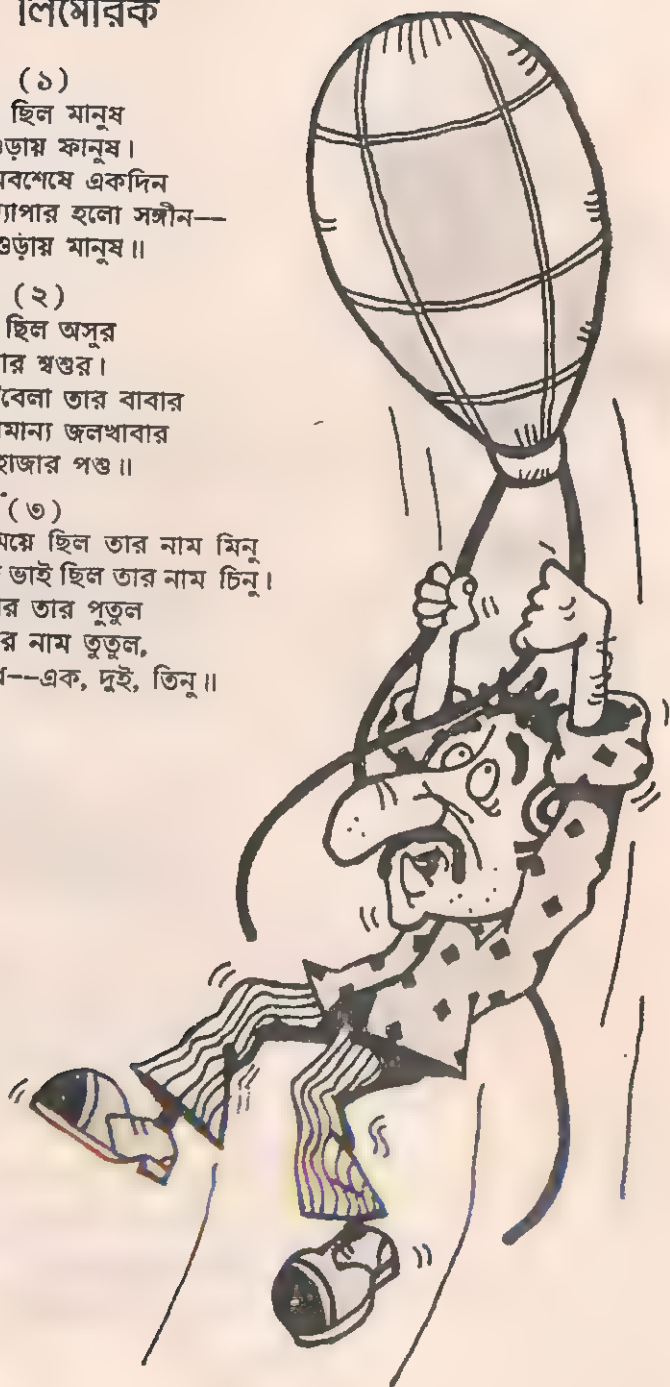 লিমেরিক
(১)
ছিল মানুষ
ওড়ায় ফানুষ।
একদিন
হলো সঙ্গীন—
ওড়ায় মানুষ॥
(২)
ছিল অসুর
শ্বশুর।
তার বাবার
জলখাবার
হাজার পশু॥
(৩)
ছিল তার নাম মিনু
ভাই ছিল তার নাম চিনু।
তার পুতুল
নাম তুতুল,
--এক, দুই, তিনু॥